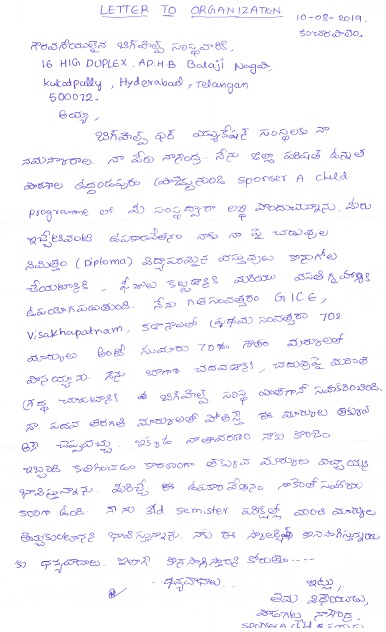 LETTER TO ORGANIZATION
10-08-2019.
కంచరపాలెం.
గౌరవనీయులైన బిగ్‌హెల్ప్ సంస్థవారికి,
16 HIG DUPLEX. A.P.H.B Balaji Nagar,
kukatpally, Hyderabad, Telangan
500072.
అయ్యా,
బిగ్‌హెల్ప్ ఫర్ ఎడ్యుకేషన్ సంస్థలకు నా
నమస్కారాలు. నా పేరు నాగేంద్ర. నేను జిల్లా పరిషత్ ఉన్నత
పాఠశాల sponser A child
programme లో మీ సంస్థద్వారా లబ్ధి పొందుచున్నాను. మీరు
ఇచ్చేటివంటి ఉపకారవేతనం నాకు నా పై చదువుల
నిమిత్తం (Diploma) విద్యాపరమైన వస్తువులు కొనుగోలు
చేయటానికి, ఫీజులు కట్టడానికి మరియు వసతి గృహానికి
ఉపయోగపడుతుంది. నేను గతసంవత్సరం GICE,
Visakhapatnam, కళాశాలలో ప్రథమ సంవత్సరం 702
మార్కులు అంటే సుమారు 70% శాతం మార్కులతో
పాసయ్యాను. నేను బాగా చదవడానికి, చదువుపై మరింత
శ్రద్ధ చూపటానికి ఈ బిగ్‌హెల్ప్ సంస్థ ఎంతగానో సహకరించింది.
నా పదవ తరగతి మార్కులతో పోలిస్తే ఈ మార్కులు తక్కువ
అని చెప్పవచ్చు. ఇక్కడ వాతావరణం నాకు కొంచెం
ఇబ్బంది కలిగించడం కారణంగా తక్కువ మార్కులు వచ్చాయని
భావిస్తున్నాను. మీరిచ్చే ఈ ఉపకారవేతనం నాకెంతో సహాయ
కరంగా ఉంది. నేను 3rd semister పరీక్షల్లో మంచి మార్కులు
తెచ్చుకుంటానని భావిస్తున్నాను. నాకు ఈ స్కాలర్షిప్ అందిస్తున్నందు
కు ధన్యవాదాలు. ఇలాగే కొనసాగిస్తారని కోరుతూ----
- ధన్యవాదాలు.
ఇట్లు,
తమ విధేయుడు,
నాగేంద్ర